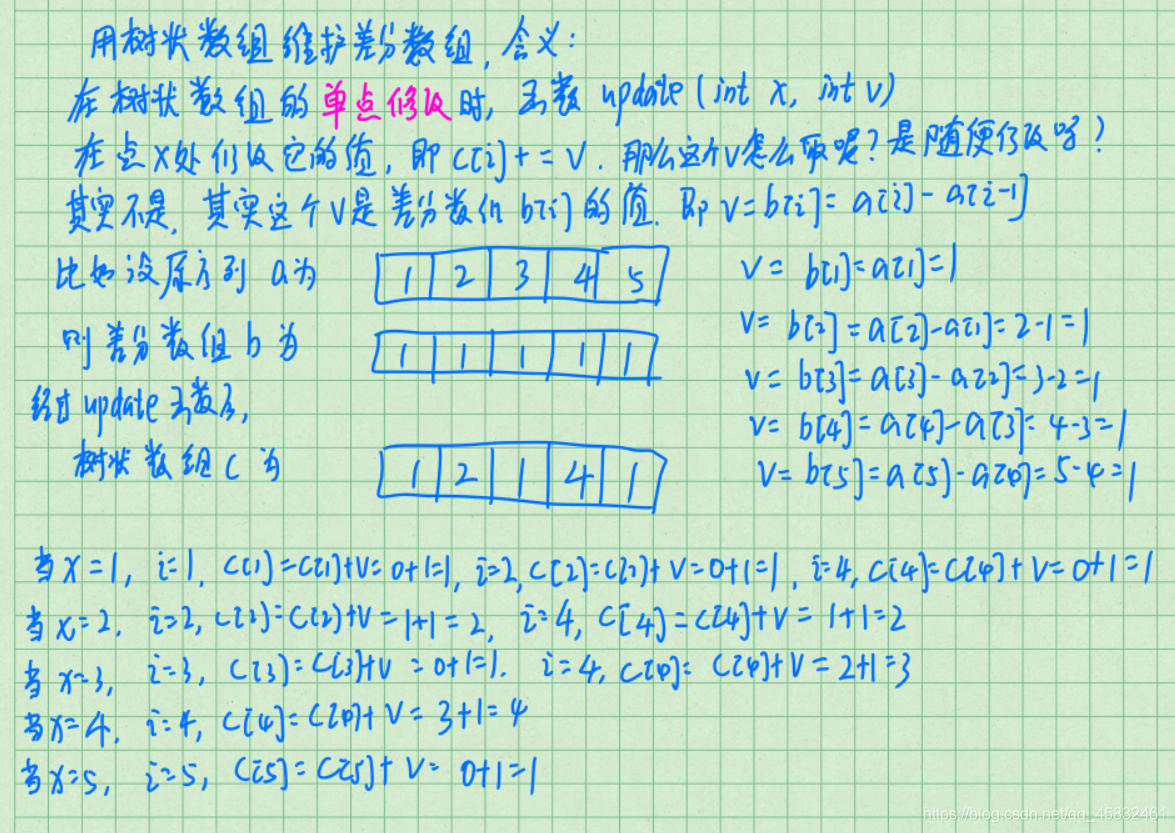 用树状数组维护差分数组,含义:
在树状数组的单点修改时,函数 update(int x, int v)
在点x处修改它的值,即 c[i]+=v. 那么这个v怎么取呢?是随便修改吗?
其实不是,其实这个v是差分数组b[i]的值. 即v=b[i]=a[i]-a[i-1]
比如设原序列 a为
1 2 3 4 5
v= b[1]=a[1]=1
则差分数组b为
1 1 1 1 1
v= b[2]=a[2]-a[1]=2-1=1
v= b[3]=a[3]-a[2]=3-2=1
经过update函数后,
v= b[4]=a[4]-a[3]=4-3=1
树状数组c为
1 2 1 4 1
v= b[5]=a[5]-a[4]=5-4=1
当x=1, i=1, c[1]=c[1]+v=0+1=1, i=2, c[2]=c[2]+v=0+1=1, i=4, c[4]=c[4]+v=0+1=1
当x=2, i=2, c[2]=c[2]+v=1+1=2, i=4, c[4]=c[4]+v=1+1=2
当x=3, i=3, c[3]=c[3]+v=0+1=1. i=4, c[4]=c[4]+v=2+1=3
当x=4, i=4, c[4]=c[4]+v=3+1=4
当x=5, i=5, c[5]=c[5]+v=0+1=1
https://blog.csdn.net/qq_45832461